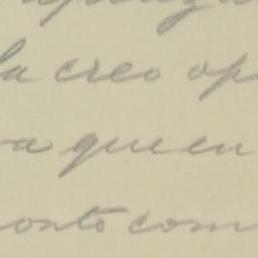 la creo op
va que en
onto com